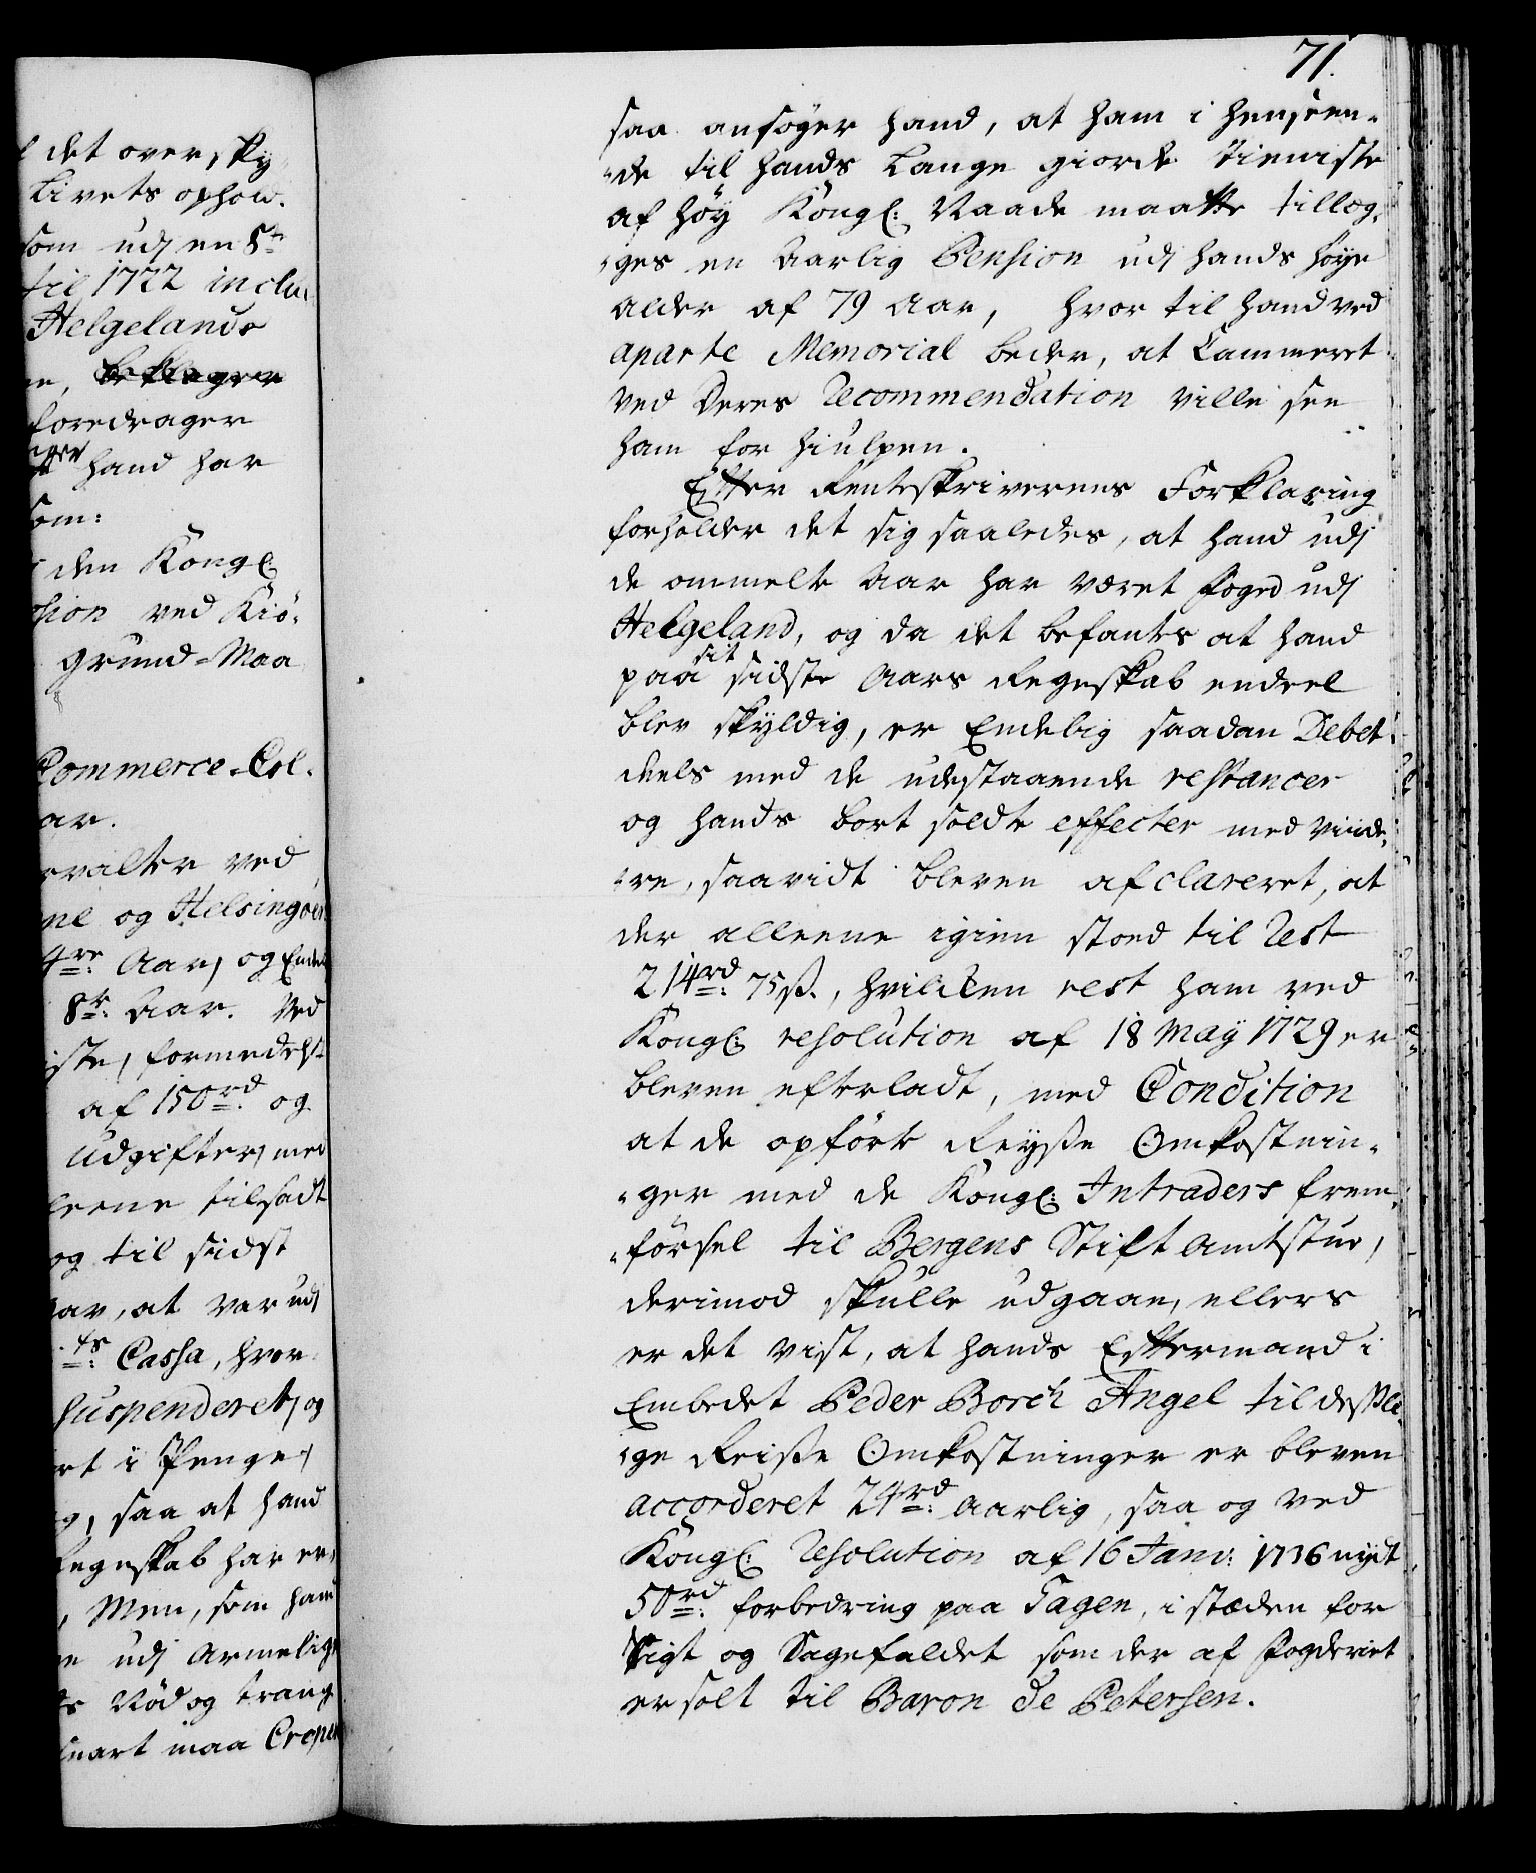 l det oversky
Livets ophow.
som udj en 8te
til 1722 inclu
Helgelands
foredrager
hand har
som:
den Kongl:
ved Kiö:
Grund-Maa
Commerce-Col.
ar.
ved
og Helsingöer
4re: Aar, og Ende
8te: Aar. Ved
formedelst
af 150rd: og
Udgifter, med
tilsadt
og til sidst
at var udj
Cassa, hvor
suspenderet, og
i Penge,
saa at hand
Regnskab har er
Men, som hand
udj Armelig
Nöd og trang
snart maa Crepe
71.
saa ansöger hand, at ham i henseen-
-de til hands lange giorde tieniste
af höy Kongl: Naade maatte tillæg-
-ges en Aarlig Pension udj hands höye
alder af 79 Aar, hvor til hand ved
aparte Memorial beder, at Cammeret
ved Deres Recommendation ville see
ham forhiulpen.
Efter Renteskriverens Forklaring
forholder det sig saaledes, at hand udj
de ommelte Aar har været Foged udj
Helgeland, og da det befantes at hand
paa sit sidste Aars Regnskab endeel
blev skyldig, er Endelig saadan Debet
deels med de udestaaende restancer
og hands bort soldte effecter med viide-
-re, saavidt bleven afclareret, at
der alleene igien stoed til Rest
214rd: 75ß., hvilken rest ham ved
Kongl: resolution af 18 May 1729 er
bleven efterladt, med Condition
at de opförte Reyße Omkostnin-
-ger med de Kongl: Intraders frem-
-försel til Bergens Stiftamtstue,
derimod skulle udgaae, ellers
er det vist, at hands Eftermand i
Embedet Peder Borch Angel til deßli-
-ge Reiße Omkostninger er bleven
accorderet 24rd: Aarlig, saa og ved
Kongl: Resolution af 16 Janv: 1736 nydt
50rd: forbedring paa Gagen, i stæden for
Sigt og Sagefaldet som der af Fogderiet
er solt til Baron de Petersen.